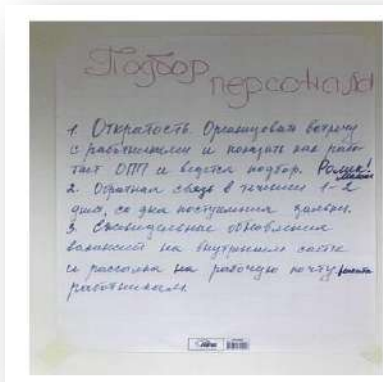 Подбор
персонала
1. Открытость. Организовать встречу
с работниками и показать как рабо-
тает ОПП и ведется подбор. Ролик!
2. Обратная связь в течении 1-2
дня, со дня поступления заявки.
3. Еженедельное обновление
вакансий на внутреннем сайте
и рассылка на рабочую почту
работникам